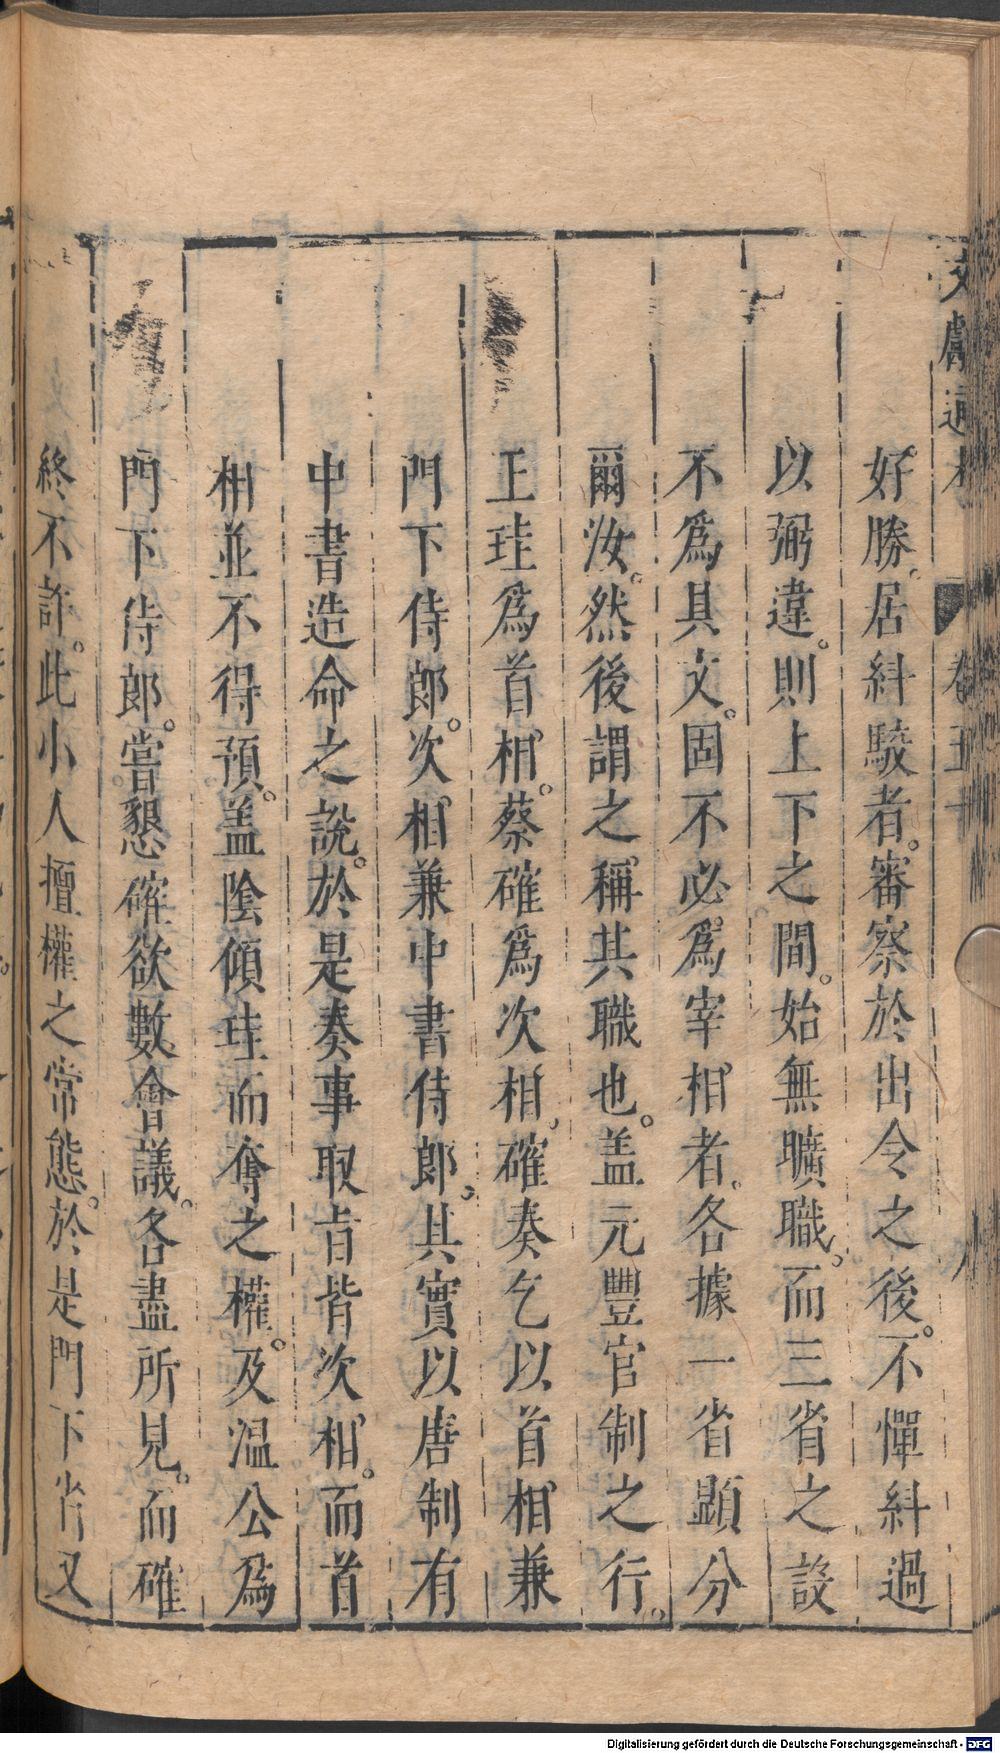 文獻通考 卷五十 八
好勝。居糾駮者。審察於出令之後。不憚糾過
以弼違。則上下之間。始無曠職。而三省之設
不爲具文。固不必爲宰相者。各據一省顯分
爾汝。然後謂之稱其職也。盖元豐官制之行。
王珪爲首相。蔡確爲次相。確奏乞以首相兼
門下侍郎。次相兼中書侍郎。其實以唐制有
中書造命之說。於是奏事取㫖皆次相。而首
相並不得預。盖陰傾珪而奪之權。及溫公爲
門下侍郎。嘗懇確欲數會議。各盡所見。而確
終不許。此小人擅權之常態。於是門下省又
Digitalisierung gefördert durch die Deutsche Forschungsgemeinschaft - DFG